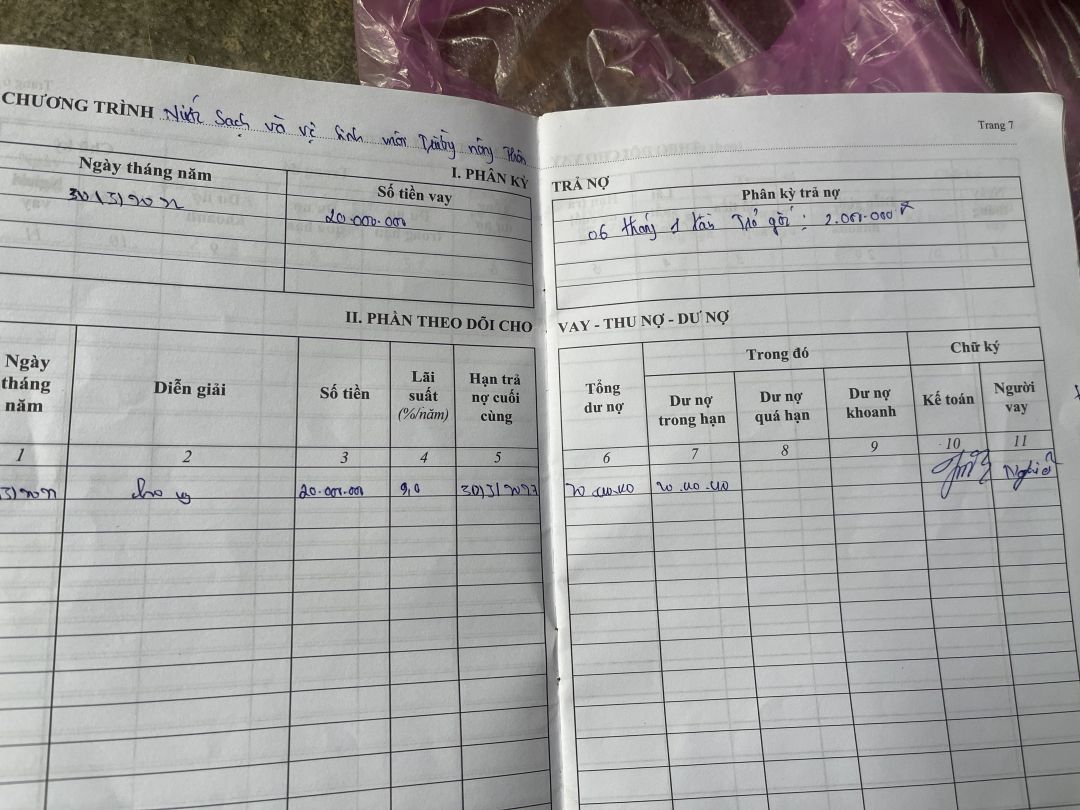 CHƯƠNG TRÌNH Nước Sạch và vệ sinh môi Trường nông thôn
Trang 7
I. PHÂN KỲ TRẢ NỢ
Ngày tháng năm Số tiền vay Phân kỳ trả nợ
20.000.000 06 tháng 1 lần Trả gốc: 2.000.000đ
II. PHẦN THEO DÕI CHO VAY - THU NỢ - DƯ NỢ
Ngày tháng năm Diễn giải Số tiền Lãi suất (%/năm) Hạn trả nợ cuối cùng Tổng dư nợ Trong đó Chữ ký
Dư nợ trong hạn Dư nợ quá hạn Dư nợ khoanh Kế toán Người vay
1 2 3 4 5 6 7 8 9 10 11
Cho vay 20.000.000 9,0 20.000.000 20.000.000